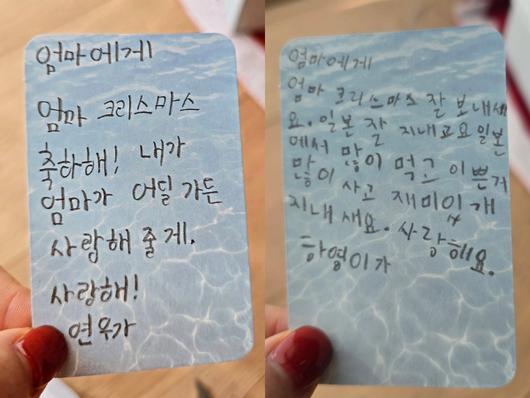 엄마에게
엄마 크리스마스
축하해! 내가
엄마가 어딜 가든
사랑해 줄게.
사랑해!
연우가
엄마에게
엄마 크리스마스 잘 보내세
요. 일본 잘 지내고요 일본
에서 많이 먹고 이쁜거
많이 사고 재미있게
지내세요. 사랑해요.
하영이가